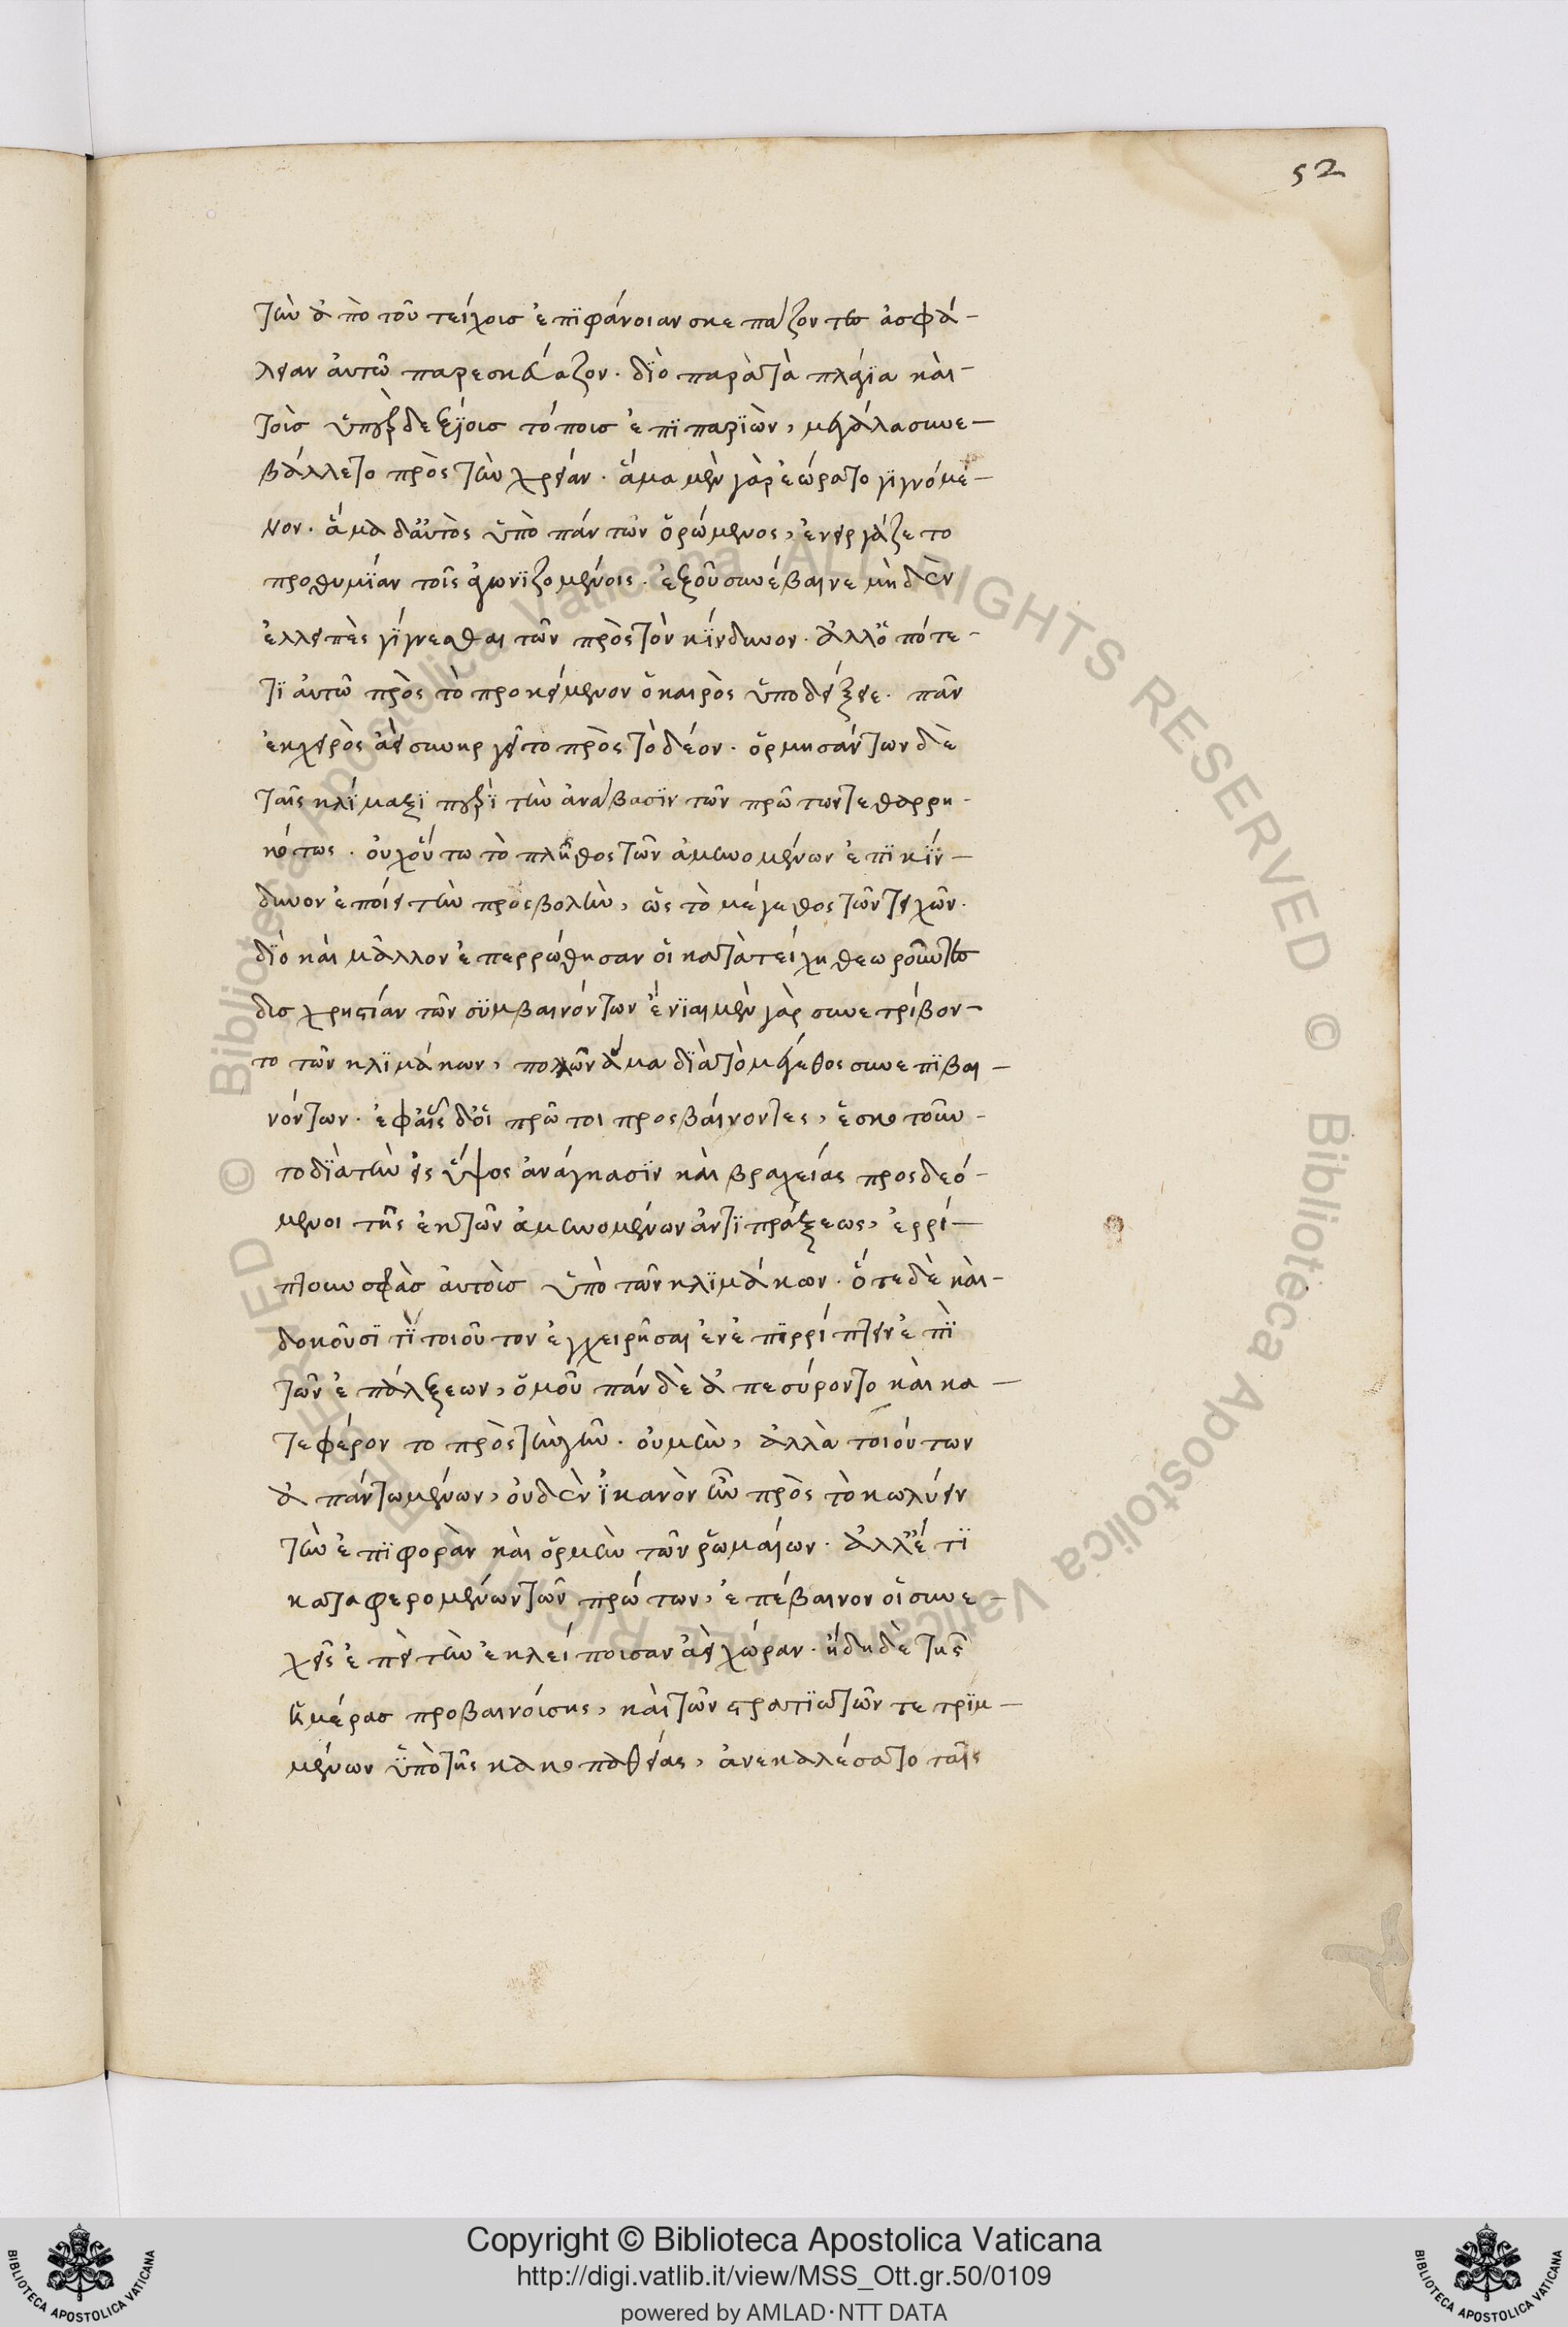 52
τὴν ἀπὸ τοῦ τείχους ἐπιφάνοιαν σκεπάζοντες ἀσφά-
λειαν αὐτῶ παρεσκεύαζον. διὸ παρὰ τὰ πλάγια καὶ
τοὶς ὑπερδεξίοις τόποις ἐπιπαριὼν, μεγάλα συνε-
βάλλετο πρὸς τὴν χρείαν. ἅμα μὲν γὰρ ἑώρα τὸ γιγνόμε-
νον. ἅμα δ' αὐτὸς ὑπὸ πάντων ὁρώμενος, ἐνειργάζετο
προθυμίαν τοῖς ἀγωνιζομένοις. ἐξοῦ συνέβαινε μηδὲν
ἐλλειπὲς γίγνεσθαι τῶν πρὸς τὸν κίνδυνον. ἀλλ' ὅ πότε
τι αὐτῶ πρὸς τὸ προκείμενον ὁ καιρὸς ὑποδείξειε. πᾶν
ἐκχειρὸς ἀεὶ συνηργεῖτο πρὸς τὸ δέον. ὁρμησάντων δὲ
ταῖς κλίμαξι περὶ τὴν ἀνάβασιν τῶν πρώτων τεθαρρη-
κότως. οὐχ οὕτω τὸ πλῆθος τῶν ἀμυνομένων ἐπικίν-
δυνον ἐποίει τὴν προσβολὴν, ὡς τὸ μέγεθος τῶν τειχῶν.
διὸ καὶ μᾶλλον ἐπερρώθησαν οἱ κατὰ τείχη θεωροῦντες
δισχρηστίαν τῶν συμβαινόντων ἔνιαι μὲν γὰρ συνετρίβον-
το τῶν κλιμάκων, πολλῶν ἅμα διὰ τὸ μέγεθος συνεπιβαι-
νόντων. ἐφ' αἷς δ' οἱ πρῶτοι προσβαίνοντες, ἐσκοτοῦν-
το διὰ τὴν εἰς ὕψος ἀνάγκασιν καὶ βραχείας προσδεό-
μενοι τῆς ἐκ τῶν ἀμυνομένων ἀντιπράξεως, ἐρρί-
πτουν σφὰς αὐτοὺς ὑπὸ τῶν κλιμάκων. ὅτε δὲ καὶ
δοκοῦσί τι τοιοῦτον ἐγχειρῆσαι ἐνεπιρρίπτειν ἐπὶ
τῶν ἐπάλξεων, ὁμοῦ πάνδε ἀπεσύροντο καὶ κα-
τεφέροντο πρὸς τὴν γῆν. οὐ μὴν, ἀλλὰ τοιούτων
ἀπάντωμένων, οὐδὲν ἱκανὸν ἦν πρὸς τὸ κωλύειν
τὴν ἐπιφορὰν καὶ ὁρμὴν τῶν ῥωμαίων. ἀλλ' ἔτι
καταφερομένων τῶν πρώτων, ἐπέβαινον οἱ συνε-
χεῖς ἐπεὶ τὴν ἐκλείπουσαν ἀεὶ χώραν. ἤδη δὲ τῆς
ἡμέρας προβαινούσης, καὶ τῶν στρατιωτῶν τετριμ-
μένων ὑπὸ τῆς κακοπαθείας, ἀνεκαλέσατο ταῖς
Copyright © Biblioteca Apostolica Vaticana
http://digi.vatlib.it/view/MSS_Ott.gr.50/0109
powered by AMLAD·NTT DATA
BIBLIOTECA APOSTOLICA VATICANA
BIBLIOTECA APOSTOLICA VATICANA
© Biblioteca Apostolica Vaticana ALL RIGHTS RESERVED © Biblioteca Apostolica Vaticana ALL RIGHTS RESERVED